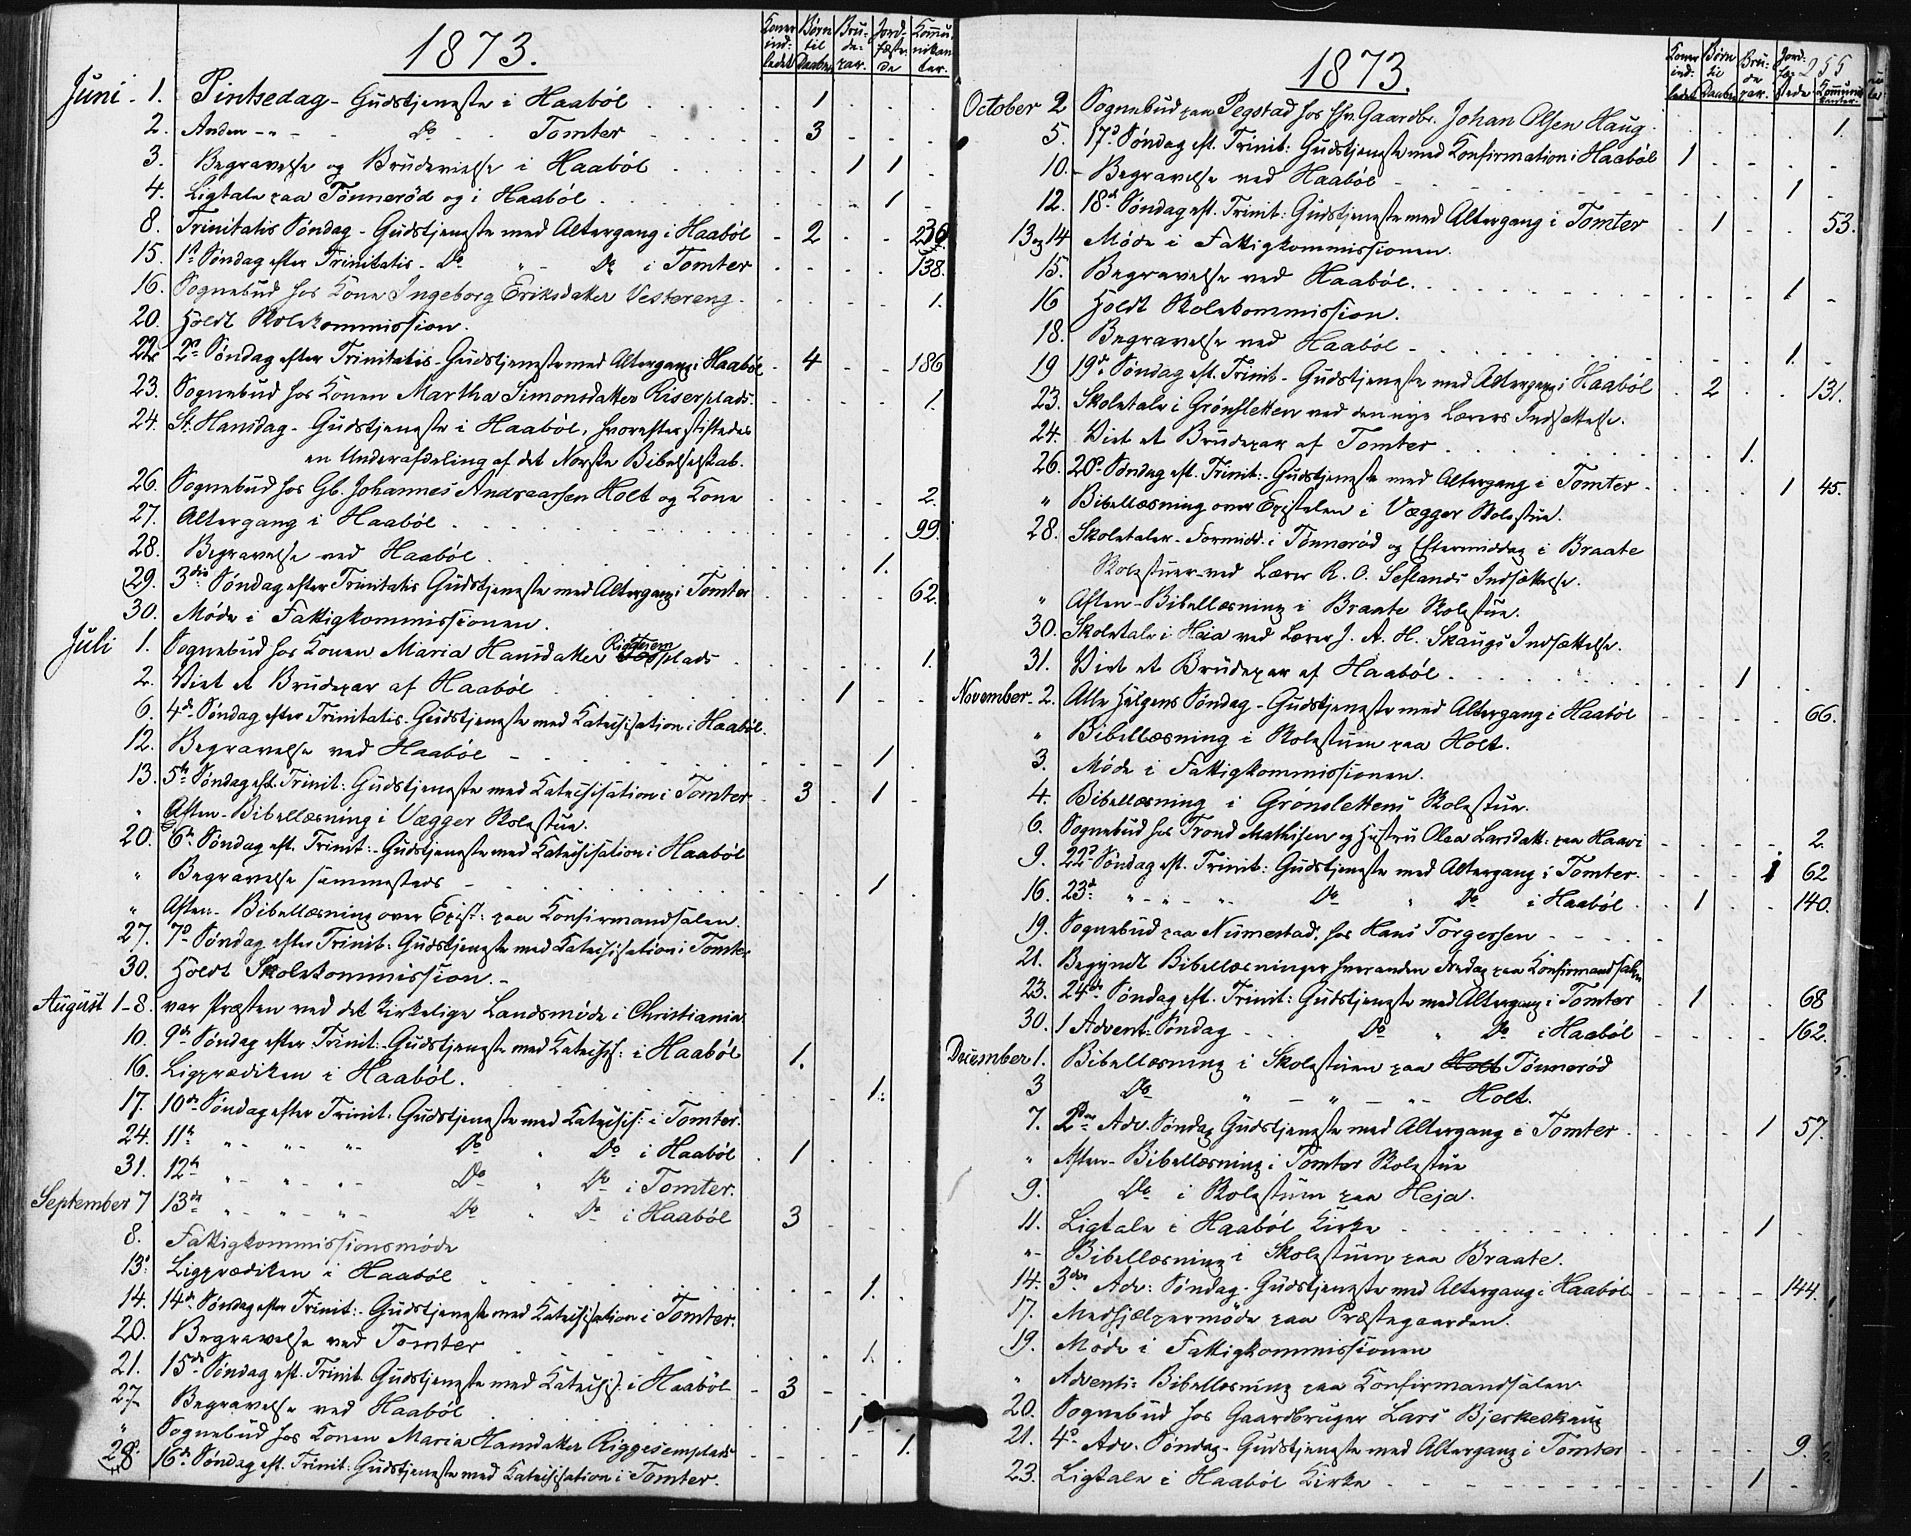 1873.
Koner ind: ledet
Børn til Daaben
Bru- de- par.
Jord- fæste- de
Kommu- nikan- ter.
Juni 1. Pintsedag - Gudstjeneste i Haabøl 1
2. Anden - " - Do Tomter 3
3. Begravelse og Brudevielse i Haabøl 1 1
4. Ligtale paa Tönnerød og i Haabøl 1
8. Trinitatis Søndag - Gudstjeneste med Altergang i Haabøl 2 236
15. 1ste Søndag efter Trinitatis - Do " Do i Tomter 138.
16. Sognebud hos Kone Ingeborg Eriksdatter Vestereng 1.
20. Holdt Skolekommission.
22. 2den Søndag efter Trinitatis - Gudstjeneste med Altergang i Haabøl 4 186
23. Sognebud hos Konen Martha Simonsdatter Riserplads. 1.
24. St. Hansdag - Gudstjeneste i Haabøl, hvorefter stiftedes
en Underafdeling af det Norske Bibelselskab.
26. Sognebud hos Gb. Johannes Andreassen Holt og Kone 2.
27. Altergang i Haabøl 99.
28. Begravelse ved Haabøl 1.
29. 3die Søndag efter Trinitatis Gudstjeneste med Altergang i Tomter 62.
30. Møde i Fattigkommissionen.
Juli 1. Sognebud hos Konen Maria Hansdatter Riggesem plads 1.
2. Viet et Brudepar af Haabøl 1
6. 4de Søndag efter Trinitatis - Gudstjeneste med Katechisation i Haabøl.
12. Begravelse ved Haabøl 1
13. 5te Søndag eft. Trinit: Gudstjeneste med Katechisation i Tomter 3 1
" Aften - Bibellæsning i Vægger Skolestue.
20. 6te Søndag eft. Trinit: - Gudstjeneste med Katechisation i Haabøl
" Begravelse sammesteds 1
" Aften - Bibellæsning over Epist: paa Konfirmandsalen.
27. 7de Søndag efter Trinit: Gudstjeneste med Katechisation i Tomter
30. Holdt Skolekommission. -
August 1-8. var Præsten ved det kirkelige Landsmøde i Christiania
10. 9de Søndag efter Trinit: Gudstjeneste med Katechis: i Haabøl 1.
16. Ligprædiken i Haabøl. 1.
17. 10de Søndag efter Trinit: Gudstjeneste med Katechis: i Tomter.
24. 11te " - " - " - Do " Do i Haabøl 1
31. 12te " - " - " - Do " Do i Tomter.
September 7 13de " - " - " - Do " Do i Haabøl 3
8. Fattigkommissionsmøde
13. Ligprædiken i Haabøl 1.
14. 14de Søndag efter Trinit: - Gudstjeneste med Katechisation i Tomter.
20. Begravelse ved Tomter 1.
21. 15de Søndag eft. Trinit. Gudstjeneste med Katechis: i Haabøl 3
27. Begravelse ved Haabøl 1
" Sognebud hos Konen Maria Hansdatter Riggesemplads 1.
28. 16de Søndag eft. Trinit: Gudstjeneste med Katechisation i Tomter.
1873.
255
Koner ind: ledet
Børn til Daaben
Bru- de par.
Jord- fæ- stede
Kommuni- kanter.
October 2 Sognebud paa Pegstad hos fhv. Gaardbr. Johan Olsen Haug 1.
5. 17de Søndag eft. Trinit: Gudstjeneste med Konfirmation i Haabøl 1
10. Begravelse ved Haabøl 1
12. 18de Søndag eft. Trinit: Gudstjeneste med Altergang i Tomter 1 53.
13 og 14 Møde i Fattigkommissionen.
15. Begravelse ved Haabøl. 1
16 Holdt Skolekommission.
18. Begravelse ved Haabøl 1.
19 19de Søndag eft. Trinit - Gudstjeneste med Altergang i Haabøl 2 131.
23. Skoletale i Grönsletten ved den nye Lærers Indsættelse.
24. Viet et Brudepar af Tomter 1.
26. 20de Søndag eft. Trinit: - Gudstjeneste med Altergang i Tomter 1 45.
" Bibellæsning over Epistelen i Vægger Skolestue.
28. Skoletaler - Formidd. i Tönnerød og Eftermiddag i Braate
Skolestuer ved Lærer R. O. Seflands Indsættelse.
" Aften - Bibellæsning i Braate Skolestue.
30. Skoletale i Heia ved Lærer J. A. H. Skaugs Indsættelse.
31. Viet et Brudepar af Haabøl 1
November 2. Alle Helgens Søndag - Gudstjeneste med Altergang i Haabøl 66.
" Bibellæsning i Skolestuen paa Holt.
3. Møde i Fattigkommissionen.
4. Bibellæsning i Grönslettens Skolestue.
6. Sognebud hos Trond Mathisen og Hustru Olea Larsdatt: paa Haavi 2.
9. 22de Søndag eft. Trinit: Gudstjeneste med Altergang i Tomter 1 62
16. 23de " - " - " - Do " Do i Haabøl 1 140.
19. Sognebud paa Numestad, hos Hans Torgersen
21. Begyndt Bibellæsninger hveranden Fredag paa Konfirmandsalen
23. 24de Søndag eft. Trinit: Gudstjeneste med Altergang i Tomter 1 68
30. 1 Advent: Søndag Do " Do i Haabøl 162.
December 1. Bibellæsning i Skolestuen paa Holt Tönnerød
3 Do " - " - " - Holt.
7. 2den Adv. Søndag Gudstjeneste med Altergang i Tomter 1 57.
" Aften - Bibellæsning i Tomter Skolestue
9. Do i Skolestuen paa Heja.
11. Ligtale i Haabøl Kirke 1
" Bibellæsning i Skolestuen paa Braate.
14. 3die Adv: Søndag. Gudstjeneste med Altergang i Haabøl 144.
17. Medhjælpermøde paa Præstegaarden.
19. Møde i Fattigkommissionen
" Advents: Bibellæsning paa Konfirmandsalen
20. Sognebud hos Gaardbruger Lars Bjerkeskaug
21. 4de Adv: Søndag - Gudstjeneste med Altergang i Tomter 9.
23. Ligtale i Haabøl Kirke 1